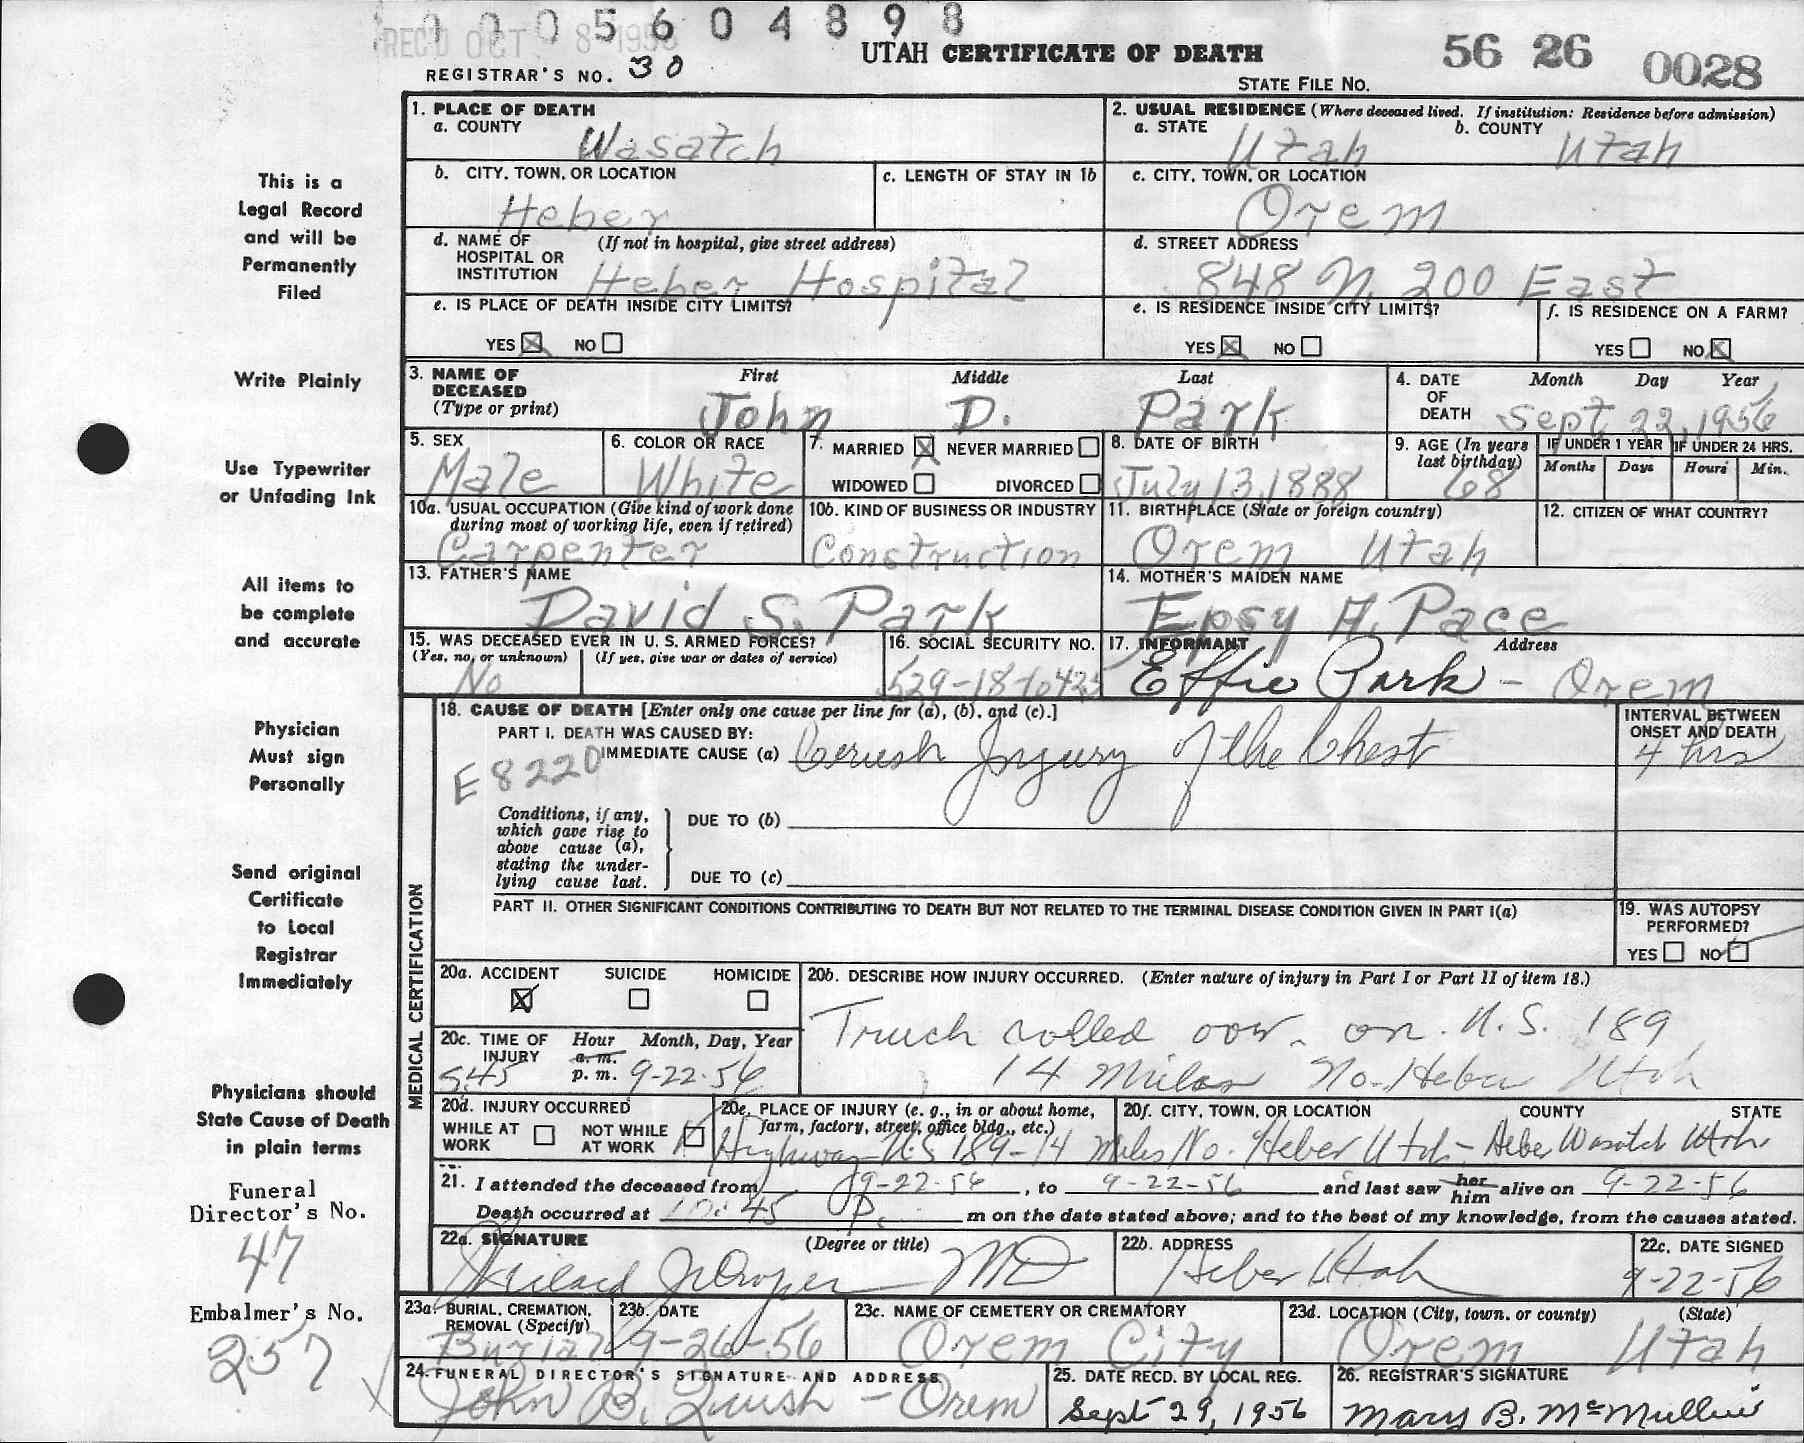 0005604898
REC'D OCT 8 1956
REGISTRAR'S NO. 30
UTAH CERTIFICATE OF DEATH
56 26 0028
STATE FILE NO.
This is a
Legal Record
and will be
Permanently
Filed
Write Plainly
Use Typewriter
or Unfading Ink
All items to
be complete
and accurate
Physician
Must sign
Personally
Send original
Certificate
to Local
Registrar
Immediately
Physicians should
State Cause of Death
in plain terms
Funeral
Director's No.
47
Embalmer's No.
257
1. PLACE OF DEATH
a. COUNTY
Wasatch
2. USUAL RESIDENCE (Where deceased lived. If institution: Residence before admission)
a. STATE b. COUNTY
Utah Utah
b. CITY, TOWN, OR LOCATION
Heber
c. LENGTH OF STAY IN 1b
c. CITY, TOWN, OR LOCATION
Orem
d. NAME OF (If not in hospital, give street address)
HOSPITAL OR
INSTITUTION Heber Hospital
d. STREET ADDRESS
848 N. 200 East
e. IS PLACE OF DEATH INSIDE CITY LIMITS?
YES NO
e. IS RESIDENCE INSIDE CITY LIMITS?
YES NO
f. IS RESIDENCE ON A FARM?
YES NO
3. NAME OF First Middle Last
DECEASED
(Type or print) John D. Park
4. DATE Month Day Year
OF
DEATH Sept 22, 1956
5. SEX
Male
6. COLOR OR RACE
White
7. MARRIED NEVER MARRIED
WIDOWED DIVORCED
8. DATE OF BIRTH
July 13, 1888
9. AGE (In years
last birthday)
68
IF UNDER 1 YEAR IF UNDER 24 HRS.
Months Days Hours Min.
10a. USUAL OCCUPATION (Give kind of work done
during most of working life, even if retired)
Carpenter
10b. KIND OF BUSINESS OR INDUSTRY
Construction
11. BIRTHPLACE (State or foreign country)
Orem Utah
12. CITIZEN OF WHAT COUNTRY?
13. FATHER'S NAME
David S. Park
14. MOTHER'S MAIDEN NAME
Epsy A. Pace
15. WAS DECEASED EVER IN U. S. ARMED FORCES?
(Yes, no, or unknown) (If yes, give war or dates of service)
No
16. SOCIAL SECURITY NO.
17. INFORMANT Address
Effie Park - Orem
MEDICAL CERTIFICATION
18. CAUSE OF DEATH [Enter only one cause per line for (a), (b), and (c).]
PART I. DEATH WAS CAUSED BY:
IMMEDIATE CAUSE (a) Crush Injury of the Chest
E 8220
INTERVAL BETWEEN
ONSET AND DEATH
4 hrs
Conditions, if any,
which gave rise to
above cause (a),
stating the under-
lying cause last.
DUE TO (b)
DUE TO (c)
PART II. OTHER SIGNIFICANT CONDITIONS CONTRIBUTING TO DEATH BUT NOT RELATED TO THE TERMINAL DISEASE CONDITION GIVEN IN PART I(a)
19. WAS AUTOPSY
PERFORMED?
YES NO
20a. ACCIDENT SUICIDE HOMICIDE
20b. DESCRIBE HOW INJURY OCCURRED. (Enter nature of injury in Part I or Part II of item 18.)
Truck rolled over. on. U.S. 189
14 Miles No. Heber Utah
20c. TIME OF Hour Month, Day, Year
INJURY a. m.
545 p. m. 9-22-56
20d. INJURY OCCURRED
WHILE AT NOT WHILE
WORK AT WORK
20e. PLACE OF INJURY (e. g., in or about home,
farm, factory, street, office bldg., etc.)
Highway U.S 189-14 Miles No. Heber Utah - Heber Wasatch Utah.
20f. CITY, TOWN, OR LOCATION COUNTY STATE
21. I attended the deceased from 9-22-56, to 9-22-56 and last saw her him alive on 9-22-56
Death occurred at 45 P. m on the date stated above; and to the best of my knowledge, from the causes stated.
22a. SIGNATURE (Degree or title)
MD
22b. ADDRESS
Heber Utah
22c. DATE SIGNED
9-22-56
23a. BURIAL, CREMATION,
REMOVAL (Specify)
Burial
23b. DATE
9-26-56
23c. NAME OF CEMETERY OR CREMATORY
Orem City
23d. LOCATION (City, town, or county) (State)
Orem Utah
24. FUNERAL DIRECTOR'S SIGNATURE AND ADDRESS
John B. - Orem
25. DATE RECD. BY LOCAL REG.
Sept 29, 1956
26. REGISTRAR'S SIGNATURE
Mary B. McMullin